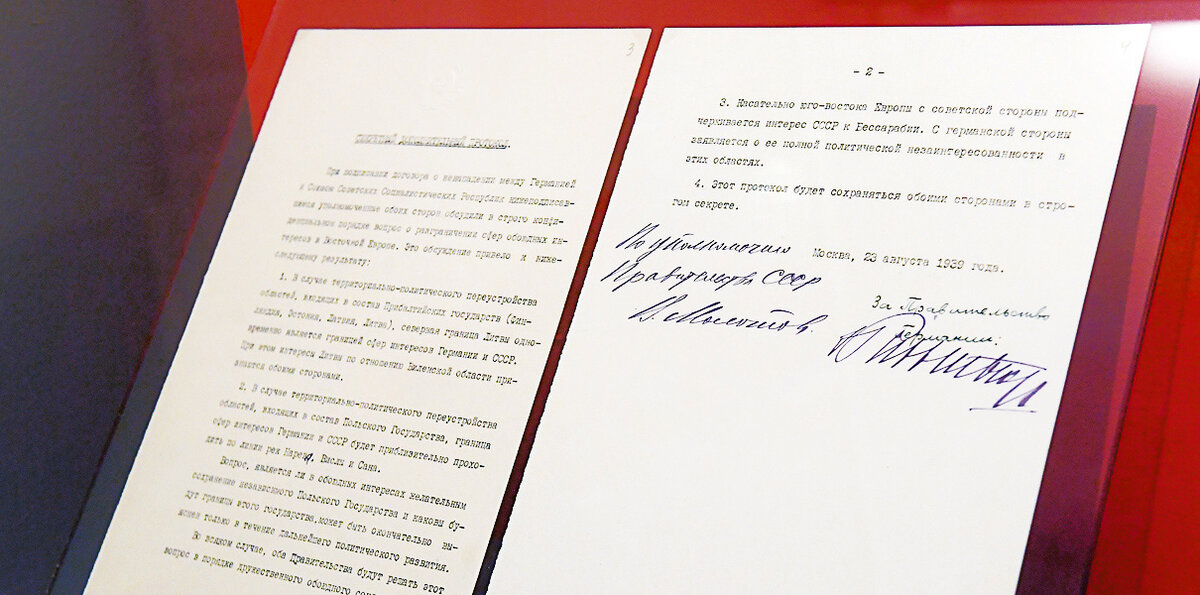 3
СЕКРЕТНЫЙ ДОПОЛНИТЕЛЬНЫЙ ПРОТОКОЛ.
При подписании договора о ненападении между Германией
и Союзом Советских Социалистических Республик нижеподписав-
шиеся уполномоченные обоих сторон обсудили в строго конфи-
денциальном порядке вопрос о разграничении сфер обоюдных ин-
тересов в Восточной Европе. Это обсуждение привело к ниже-
следующему результату:
1. В случае территориально-политического переустройства
областей, входящих в состав Прибалтийских государств (Фин-
ляндия, Эстония, Латвия, Литва), северная граница Литвы одно-
временно является границей сфер интересов Германии и СССР.
При этом интересы Литвы по отношению Виленской области при-
знаются обоими сторонами.
2. В случае территориально-политического переустройства
областей, входящих в состав Польского Государства, граница
сфер интересов Германии и СССР будет приблизительно прохо-
дить по линии рек Нарева, Вислы и Сана.
Вопрос, является ли в обоюдных интересах желательным
сохранение независимого Польского Государства и каковы бу-
дут границы этого государства, может быть окончательно вы-
яснен только в течение дальнейшего политического развития.
Во всяком случае, оба Правительства будут решать этот
вопрос в порядке дружественного обоюдного
4
- 2 -
3. Касательно юго-востока Европы с советской стороны под-
черкивается интерес СССР к Бессарабии. С германской стороны
заявляется о ее полной политической незаинтересованности в
этих областях.
4. Этот протокол будет сохраняться обоими сторонами в стро-
гом секрете.
Москва, 23 августа 1939 года.
По уполномочию
Правительства СССР
В. Молотов.
За Правительство
Германии: